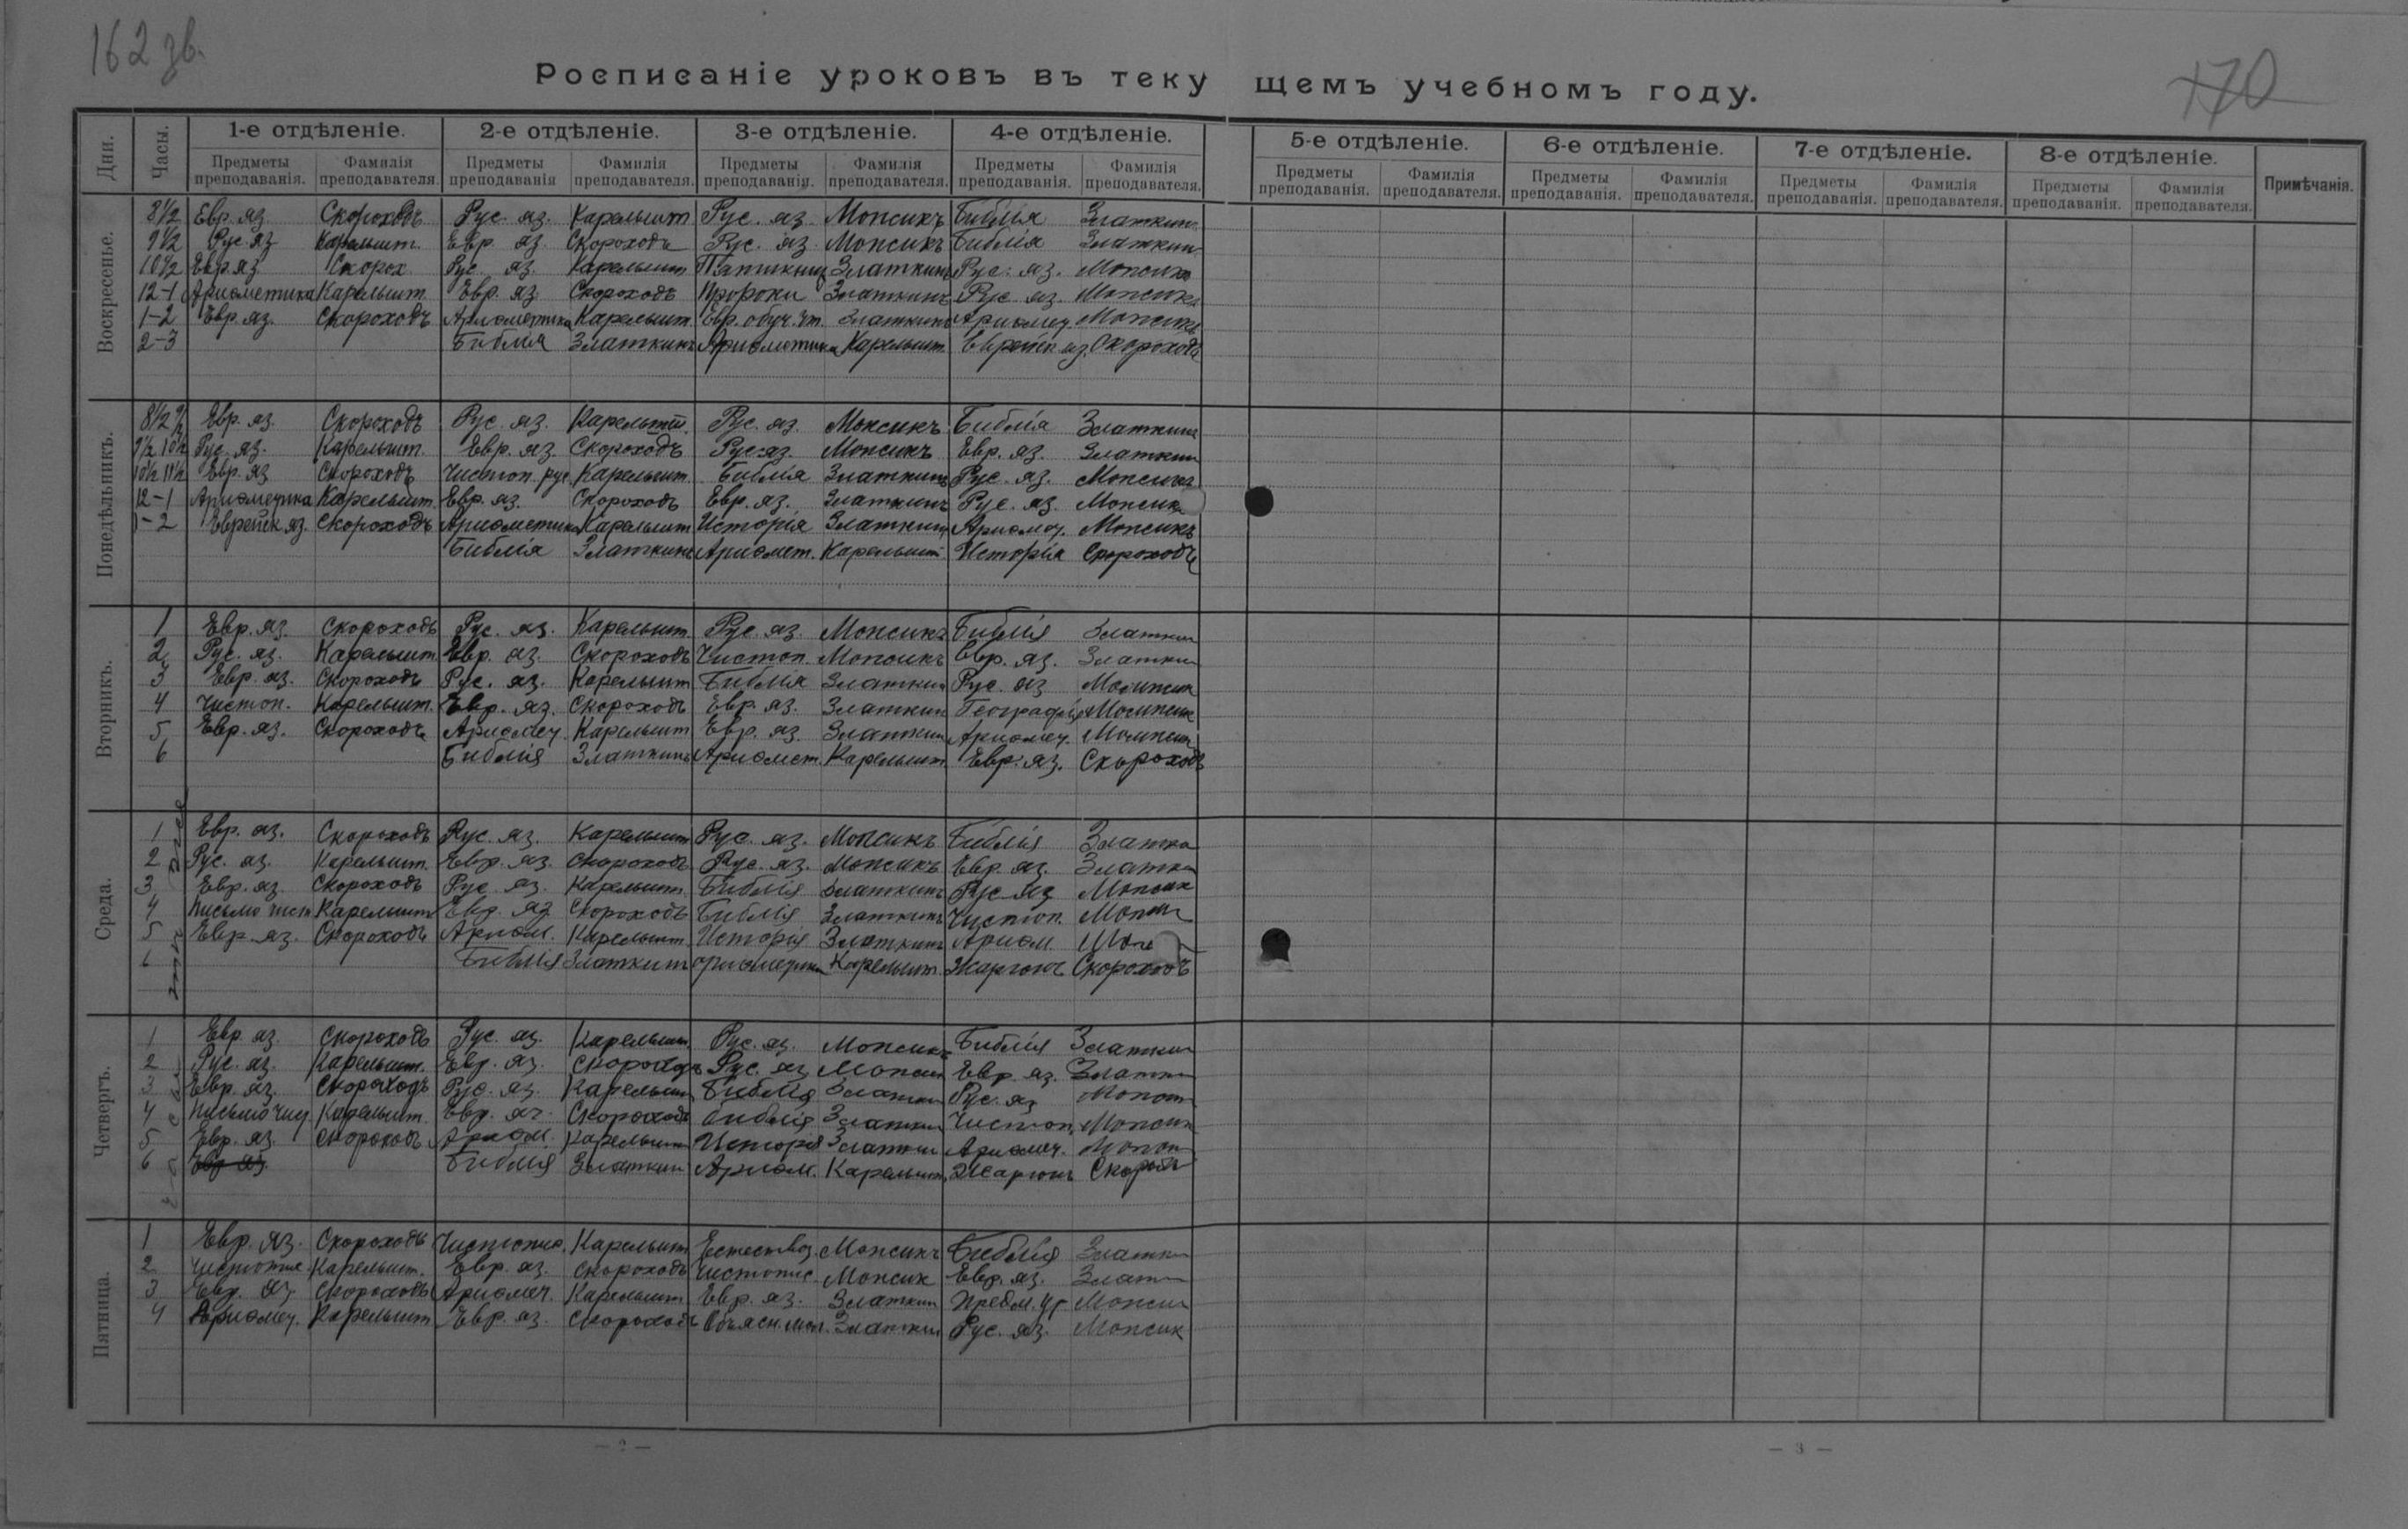 162 зв.
170
Росписаніе уроковъ въ теку щемъ учебномъ году.
Дни. Часы. 1-е отдѣленіе. 2-е отдѣленіе. 3-е отдѣленіе. 4-е отдѣленіе. 5-е отдѣленіе. 6-е отдѣленіе. 7-е отдѣленіе. 8-е отдѣленіе. Примѣчанія.
Предметы преподаванія. Фамилія преподавателя. Предметы преподаванія Фамилія преподавателя. Предметы преподаванія. Фамилія преподавателя. Предметы преподаванія. Фамилія преподавателя. Предметы преподаванія. Фамилія преподавателя. Предметы преподаванія. Фамилія преподавателя. Предметы преподаванія. Фамилія преподавателя. Предметы преподаванія. Фамилія преподавателя.
Воскресенье.
8½ Евр. яз. Скороходъ Рус. яз. Карельшт Рус. яз. Мопсикъ Библія Златкин
9½ Рус яз Карельшт. Евр. яз. Скороходъ Рус. яз. Мопсикъ Библія Златкин
10½ Евр. яз Скорох Рус. яз. Карельшт Златкинъ Рус. яз. Мопсикъ
12-1 Ариѳметика Карельшт. Евр. яз. Скороходъ Пророки Златкинъ Рус. яз. Мопсикъ
1-2 Евр. яз. Скороходъ Ариѳметика Карельшт. Евр. обуч. чт. Златкинъ Ариѳмет. Мопсикъ
2-3 Библія Златкинъ Ариѳметика Карельшт. Еврейск яз. Скороходъ
Понедѣльникъ.
8½ 9½ Евр. яз. Скороходъ Рус. яз. Карельшт. Рус. яз. Мопсикъ Библія Златкин
9½ 10½ Рус. яз. Карельшт. Евр. яз. Скороходъ Рус. яз. Мопсикъ Евр. яз. Златкин
10½ 11½ Евр. яз Скороходъ Чистоп. рус. Карельшт. Библія Златкинъ Рус. яз. Мопсикъ
12-1 Ариѳметика Карельшт. Евр. яз. Скороходъ Евр. яз. Златкинъ Рус. яз. Мопсик
1-2 Еврейск яз. Скороходъ Ариѳметика Карельшт Исторія Златкин Ариѳмет. Мопсикъ
Библія Златкинъ Ариѳмет. Карельшт. Исторія Скороходъ
Вторникъ.
1 Евр. яз. Скороходъ Рус. яз. Карельшт. Рус. яз. Мопсикъ Библія Златкин
2 Рус. яз. Карельшт. Евр. яз. Скороходъ Чистоп. Мопсикъ Евр. яз. Златкин
3 Евр. яз. Скороходъ Рус. яз. Карельшт Библія Златкин Рус. яз Мопсик
4 Чистоп. Карельшт. Евр. яз. Скороходъ Евр. яз. Златкин Географія Мопсик
5 Евр. яз. Скороходъ Ариѳмет. Карельшт Евр. яз. Златкин Ариѳмет. Мопсик
6 Библія Златкинъ Ариѳмет. Карельшт. Евр. яз. Скороходъ
Среда.
1 Евр. яз. Скороходъ Рус. яз. Карельшт Рус. яз. Мопсикъ Библія Златки
2 Рус. яз. Карельшт. Евр. яз. Скороходъ Рус. яз. Мопсикъ Евр. яз. Златки
3 Евр. яз. Скороходъ Рус. яз. Карельшт. Библія Златкинъ Рус яз Мопсик
4 Письмо чист Карельшт Евр. яз Скороходъ Библія Златкинъ Чистоп.
5 Евр. яз. Скороходъ Ариѳм. Карельшт. Исторія Златкинъ Ариѳм.
6 Библія Златкинъ Ариѳметика Карельшт. Жаргонъ Скороходъ
Четвергъ.
1 Евр. яз. Скороходъ Рус. яз. Карельшт. Рус. яз. Мопсикъ Библія Златкин
2 Рус. яз. Карельшт. Евр. яз. Скороходъ Рус. яз Мопсик Евр. яз. Златки
3 Евр. яз. Скороходъ Рус. яз. Карельшт Библія Златкин Рус. яз
4 Письмо чист. Карельшт. Евр. яз. Скороходъ Библія Златкин Чистоп. Мопсик
5 Евр. яз. Скороходъ Ариѳм. Карельшт Исторія Златкин Ариѳмет.
6 Евр яз. Библія Златкин Ариѳм. Карельшт. Жаргонъ
Пятница.
1 Евр. яз. Скороходъ Чистопис. Карельшт. Естествоз. Мопсикъ Библія Златки
2 Чистопис. Карельшт. Евр. яз. Скороходъ Чистопис. Мопсик Евр. яз.
3 Евр. яз Скороходъ Ариѳмет. Карельшт. Евр. яз. Златкин Предм. ур Мопсик
4 Ариѳмет. Карельшт. Евр. яз. Скороходъ Златкин Рус. яз. Мопсик
— 2 —
— 3 —